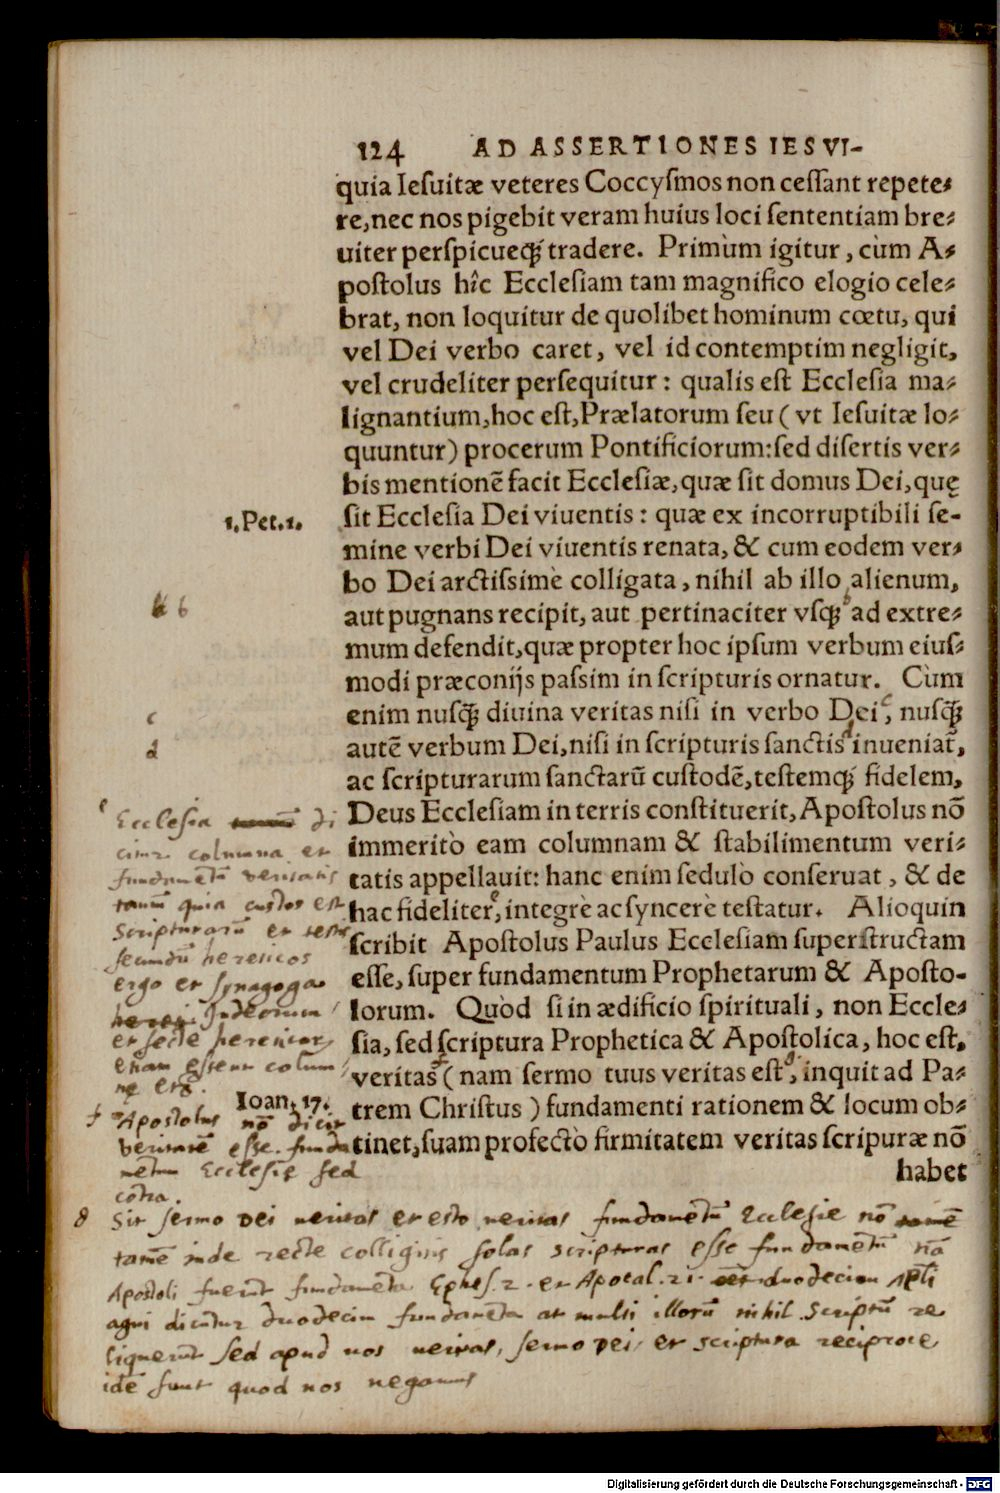 124 AD ASSERTIONES IESVI-
quia Iesuitæ veteres Coccysmos non cessant repete-
re, nec nos pigebit veram huius loci sententiam bre-
uiter perspicueq́; tradere. Primùm igitur, cùm A-
postolus hîc Ecclesiam tam magnifico elogio cele-
brat, non loquitur de quolibet hominum cœtu, qui
vel Dei verbo caret, vel id contemptim negligit,
vel crudeliter persequitur: qualis est Ecclesia ma-
lignantium, hoc est, Prælatorum seu (vt Iesuitæ lo-
quuntur) procerum Pontificiorum: sed disertis ver-
bis mentionē facit Ecclesiæ, quæ sit domus Dei, quę
1. Pet. 1.
sit Ecclesia Dei viuentis: quæ ex incorruptibili se-
mine verbi Dei viuentis renata, & cum eodem ver-
bo Dei arctissimè colligata, nihil ab illo alienum,
b
aut pugnans recipit, aut pertinaciter vsq; ad extre-
mum defendit, quæ propter hoc ipsum verbum eius-
modi præconijs passim in scripturis ornatur. Cùm
c
enim nusq̃; diuina veritas nisi in verbo Dei, nusq̃;
d
autē verbum Dei, nisi in scripturis sanctis inueniat̃,
ac scripturarum sanctarū custodē, testemq́; fidelem,
Deus Ecclesiam in terris constituerit, Apostolus nō
immeritò eam columnam & stabilimentum veri-
tatis appellauit: hanc enim sedulò conseruat, & de
hac fideliter, integrè ac syncerè testatur. Alioquin
scribit Apostolus Paulus Ecclesiam superstructam
esse, super fundamentum Prophetarum & Aposto-
lorum. Quòd si in ædificio spirituali, non Eccle-
sia, sed scriptura Prophetica & Apostolica, hoc est,
veritas (nam sermo tuus veritas est, inquit ad Pa-
Ioan. 17.
trem Christus) fundamenti rationem & locum ob-
tinet, suam profectò firmitatem veritas scripuræ nō
habet
e
Ecclesia di
citur columna et
fundamētū veritatis
tantū quia custos est
scripturarū et testis
secundū hereticos
ergo et synagoga
Iudeorum
et secte hereticor
etiam essent colum
nę
f Apostolus nō dicit
veritatē esse funda
mētum Ecclesię sed
cōtra.
g Sit sermo Dei veritas et esto veritas fundamētū Ecclesie nō
tamē inde recte colligitis solas scripturas esse fundamētū nā
Apostoli fuerūt fundamēta Ephes. 2. et Apocal. 21. duodecim Apli
agni dicūtur duodecim fundamēta at multi illorū nihil scriptū re
liquerūt sed apud vos veritas, sermo Dei, et scriptura reciproce
idē sunt quod nos negamus
Digitalisierung gefördert durch die Deutsche Forschungsgemeinschaft - DFG